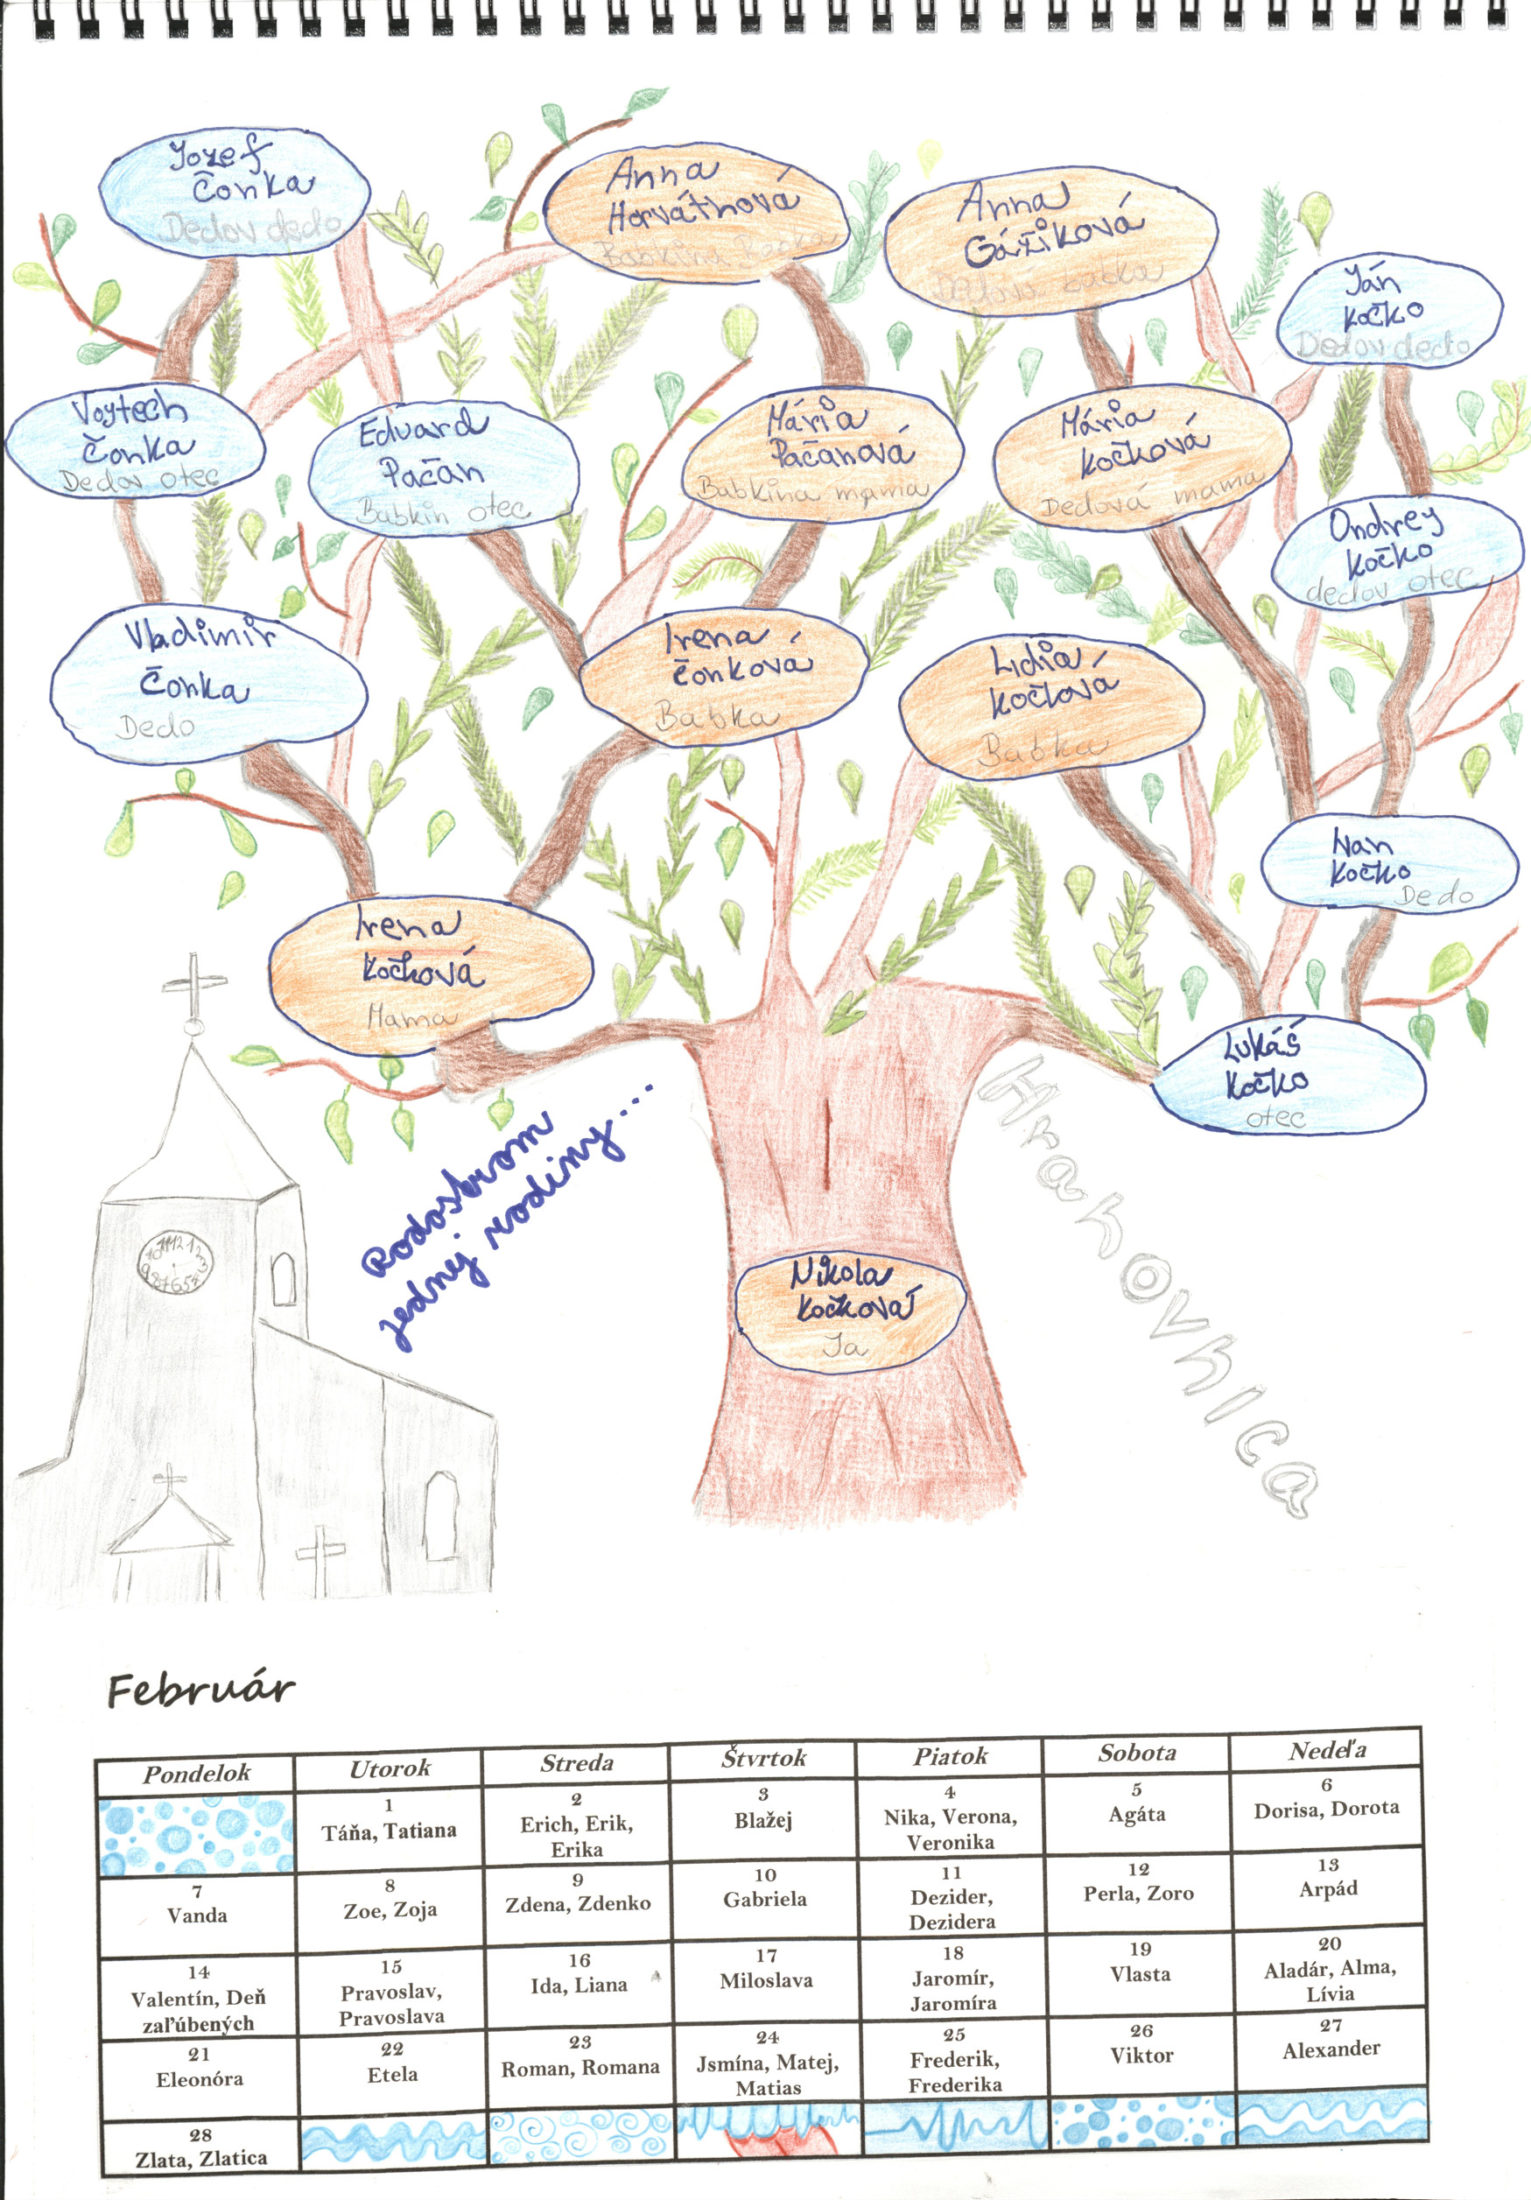 Jozef
Čonka
Dedov dedo
Anna
Horváthová
Babkina Babka
Anna
Gážiková
Dedová babka
Ján
Kočko
Dedov dedo
Voytech
Čonka
Dedov otec
Edvard
Pačan
Babkin otec
Mária
Pačanová
Babkina mama
Mária
Kočková
Dedová mama
Ondrey
Kočko
dedov otec
Vladimir
Čonka
Dedo
Irena
Čonková
Babka
Lidia
Kočková
Babka
Ivan
Kočko
Dedo
Irena
Kočková
Mama
Lukáš
Kočko
otec
Rodostrom
jednej rodiny...
Hrahovnica
11 12 1 2 3 4 5 6 7 8 9 10
Nikola
Kočková
Ja
Február
Pondelok Utorok Streda Štvrtok Piatok Sobota Nedeľa
1
Táňa, Tatiana
2
Erich, Erik,
Erika
3
Blažej
4
Nika, Verona,
Veronika
5
Agáta
6
Dorisa, Dorota
7
Vanda
8
Zoe, Zoja
9
Zdena, Zdenko
10
Gabriela
11
Dezider,
Dezidera
12
Perla, Zoro
13
Arpád
14
Valentín, Deň
zaľúbených
15
Pravoslav,
Pravoslava
16
Ida, Liana
17
Miloslava
18
Jaromír,
Jaromíra
19
Vlasta
20
Aladár, Alma,
Lívia
21
Eleonóra
22
Etela
23
Roman, Romana
24
Jsmína, Matej,
Matias
25
Frederik,
Frederika
26
Viktor
27
Alexander
28
Zlata, Zlatica